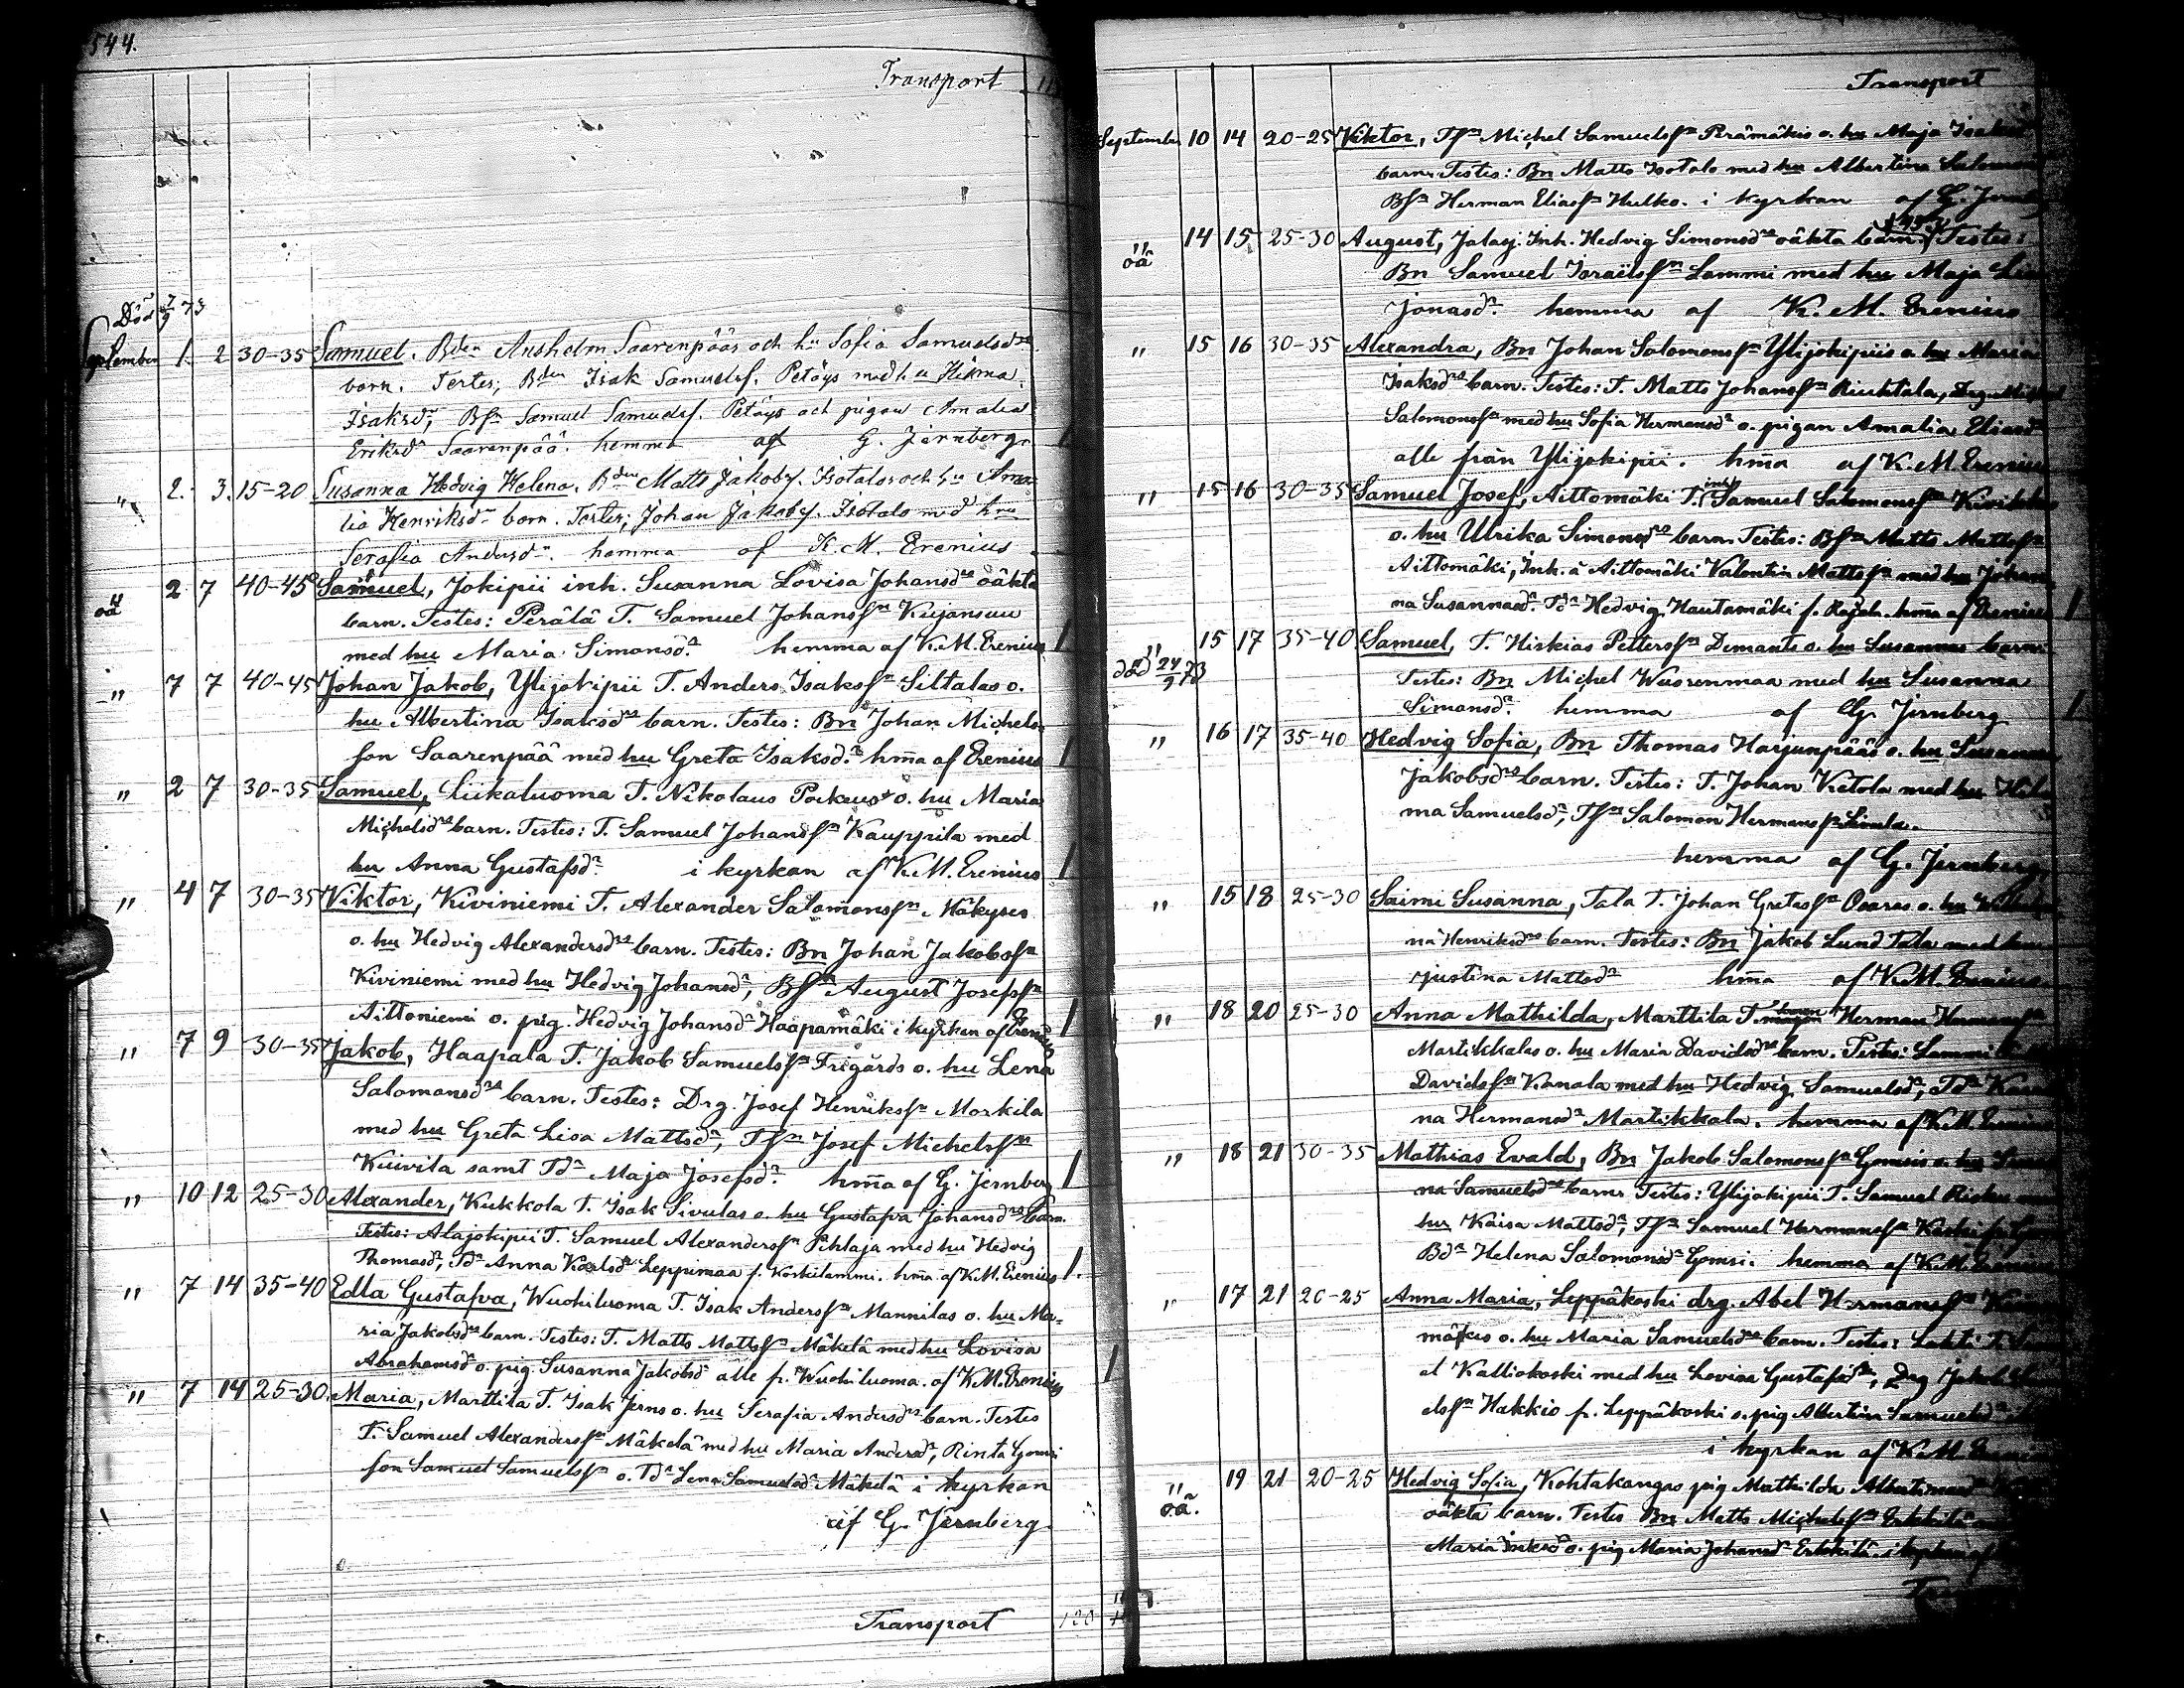 544.
Transport
Död 7/9 73
September 1. 2 30-35 Samuel. Bden Anshelm Saarenpääs och hu Sofia Samuelsdrs
barn. Testes; Bden Isak Samuelsf. Petäys med hu Hilma
Isaksdr, Bfn Samuel Samuelsf. Petäys och pigan Amalia
Eriksdr Saarenpää. hemma af G. Jernberg. 1
" 2. 3. 15-20 Susanna Hedvig Helena. Bden Matts Jakobsf. Isotalos och hu Ama-
lia Henriksdr barn. Testes; Johan Jakobsf. Isotalo med hru
Serafia Andersdr. hemma af K. M. Erenius
" oä 2 7 40-45 Samuel, Jokipii inh. Susanna Lovisa Johansdrs oäkta
barn. Testes: Perälä T. Samuel Johansfn Kujansuu
med hu Maria Simonsdr. hemma af K. M. Erenius 1
" 7 7 40-45 Johan Jakob, Ylijokipii T. Anders Isaksfn Siltalas o.
hu Albertina Isaksdrs barn. Testes: Bn Johan Michels-
son Saarenpää med hu Greta Isaksdr. hma af Erenius 1
" 2 7 30-35 Samuel, Liikaluoma T. Nikolaus Porkus o. hu Maria
Michelsdrs barn. Testes: T. Samuel Johansfn Kauppila med
hu Anna Gustafsdr i kyrkan af K. M. Erenius 1
" 4 7 30-35 Viktor, Kiviniemi T. Alexander Salomonsfn Mäkyses
o. hu Hedvig Alexandersdrs barn. Testes: Bn Johan Jakobsfn
Kiviniemi med hu Hedvig Johansdr, Bfn August Josefsfn
Aittoniemi o. pig. Hedvig Johansdr Haapamäki i kyrkan af Erenius 1
" 7 9 30-35 Jakob, Haapala T. Jakob Samuelsfn Frigårds o. hu Lena
Salomonsdrs barn. Testes: Drg. Josef Henriksfn Markila
med hu Greta Lisa Mattsdr, Tfn Josef Michelsfn
Kuivila samt Tdr Maja Josefsdr. hma af G. Jernberg 1
" 10 12 25-30 Alexander, Kukkola T. Isak Sivulas o. hu Gustafva Johansdrs barn.
Testes: Alajokipii T. Samuel Alexandersfn Pihlaja med hu Hedvig
Thomasdr, Tdr Anna Karlsdr Leppimaa f. Koskilammi. hma af K. M. Erenius 1.
" 7 14 35-40 Edla Gustafva, Wuohiluoma T. Isak Andersfn Mannilas o. hu Ma-
ria Jakobsdrs barn. Testes: T. Matts Mattsfn Mäkelä med hu Lovisa
Abrahamsdr o. pig. Susanna Jakobsdr alle fr. Wuohiluoma. af K. M. Erenius 1
" 7 14 25-30 Maria, Marttila T. Isak Jerns o. hu Serafia Andersdrs barn. Testes
T. Samuel Alexandersfn Mäkelä med hu Maria Andersdr, Rinta Gomsi
son Samuel Samuelsfn o. Tdr Lena Samuelsdr Mäkelä i kyrkan
af G. Jernberg
Transport 120
Transport
September 10 14 20-25 Viktor, Tfn Michel Samuelsfn Perämäkis o. hu Maja Isaks
barn. Testes: Bn Matts Isotalo med hu Albertina Salomons
Bfn Herman Eliasfn Hulko. i kyrkan af G. Jernb
" oä 14 15 25-30 August, Jalasj. Inh. Hedvig Simonsdrs oäkta barn. Testes:
Bn Samuel Israelsfn Lammi med hu Maja
Jonasdr. hemma af K. M. Erenius
" 15 16 30-35 Alexandra, Bn Johan Salomonsfn Ylijokipiis o. hu Maria
Isaksdrs barn. Testes: T. Matts Johansfn Riuhtala, Drg.
Salomonsfn med hu Sofia Hermansdr o. pigan Amalia Eliasdr
alle från Ylijokipii. hma af K. M. Erenius
" 15 16 30-35 Samuel Josef, Aittomäki T. inh Samuel Salomonsfn
o. hu Ulrika Simonsdrs barn. Testes: Bfn Matts Mattsfn
Aittomäki, Inh. å Aittomäki Valentin Mattsfn med hu Johan-
na Susannasdr. Tdr Hedvig Hautamäki f. hma af Erenius 1
" död 24/9 73 15 17 35-40 Samuel, T. Hiskias Pettersfn Demants o. hu Susannas barn.
Testes: Bn Michel Wuorenmaa med hu Susanna
Simonsdr. hemma af G. Jernberg 1
" 16 17 35-40 Hedvig Sofia, Bn Thomas Harjunpääs o. hu Susanna
Jakobsdrs barn. Testes: T. Johan Ketola med hu
ma Samuelsdr, Tfn Salomon Hermansfn
hemma af G. Jernberg
" 15 18 25-30 Saimi Susanna, Tala T. Johan Gretasfn Osaras o. hu
na Henriksdrs barn. Testes: Bn Jakob Lund Tala med hu
Justina Mattsdr hma af K. M. Erenius
" 18 20 25-30 Anna Mathilda, Marttila T. Herman Hermansfn
Martikkalas o. hu Maria Davidsdrs barn. Testes: Lammi
Davidsfn Kanala med hu Hedvig Samuelsdr, Tdr
na Hermansdr Martikkala. hemma af K. M. Erenius
" 18 21 30-35 Mathias Evald, Bn Jakob Salomonsfn Gomsis o. hu
na Samuelsdrs barn. Testes: Ylijokipii T. Samuel
hu Kaisa Mattsdr, Tfn Samuel Hermansfn
Bdr Helena Salomonsdr Gomsi. hemma af K. M.
" 17 21 20-25 Anna Maria, Leppäkoski drg. Abel Hermansfn
mäkis o. hu Maria Samuelsdrs barn. Testes: Lahti T.
el Kalliokoski med hu Lovisa Gustafsdr, Drg Jakob
elsfn Hakkio fr. Leppäkoski o. pig Albertina Samuelsdr
i kyrkan af K. M.
" oä. 19 21 20-25 Hedvig Sofia, Kohtakangas pig Mathilda
oäkta barn. Testes Bn Matts Michelsfn
Maria o. pig Maria Johansdr Erkkilä. i kyrkan af